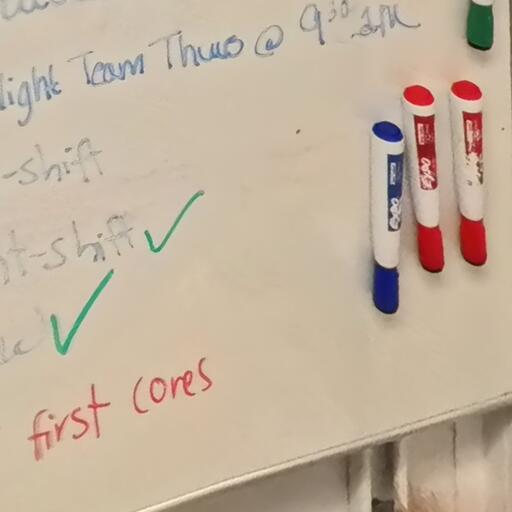 light Team Thurs @ 9³⁰ AM
-shift
t-shift ✓
✓
first cores
EXPO
EXPO